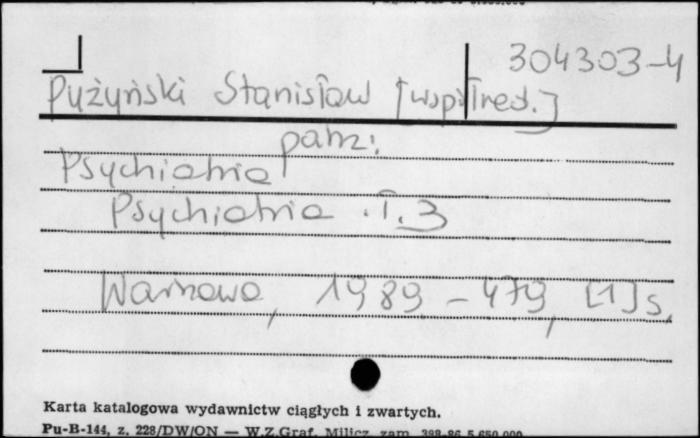 304303-4
Pużyński Stanisław [współred.]
patrz:
Psychiatria
Psychiatria .T.3
Warszawa, 1989. - 479, [1] s.
Karta katalogowa wydawnictw ciągłych i zwartych.
Pu-B-144, z. 228/DW/ON — W.Z.Graf. Milicz zam. 398-86 5.650.000